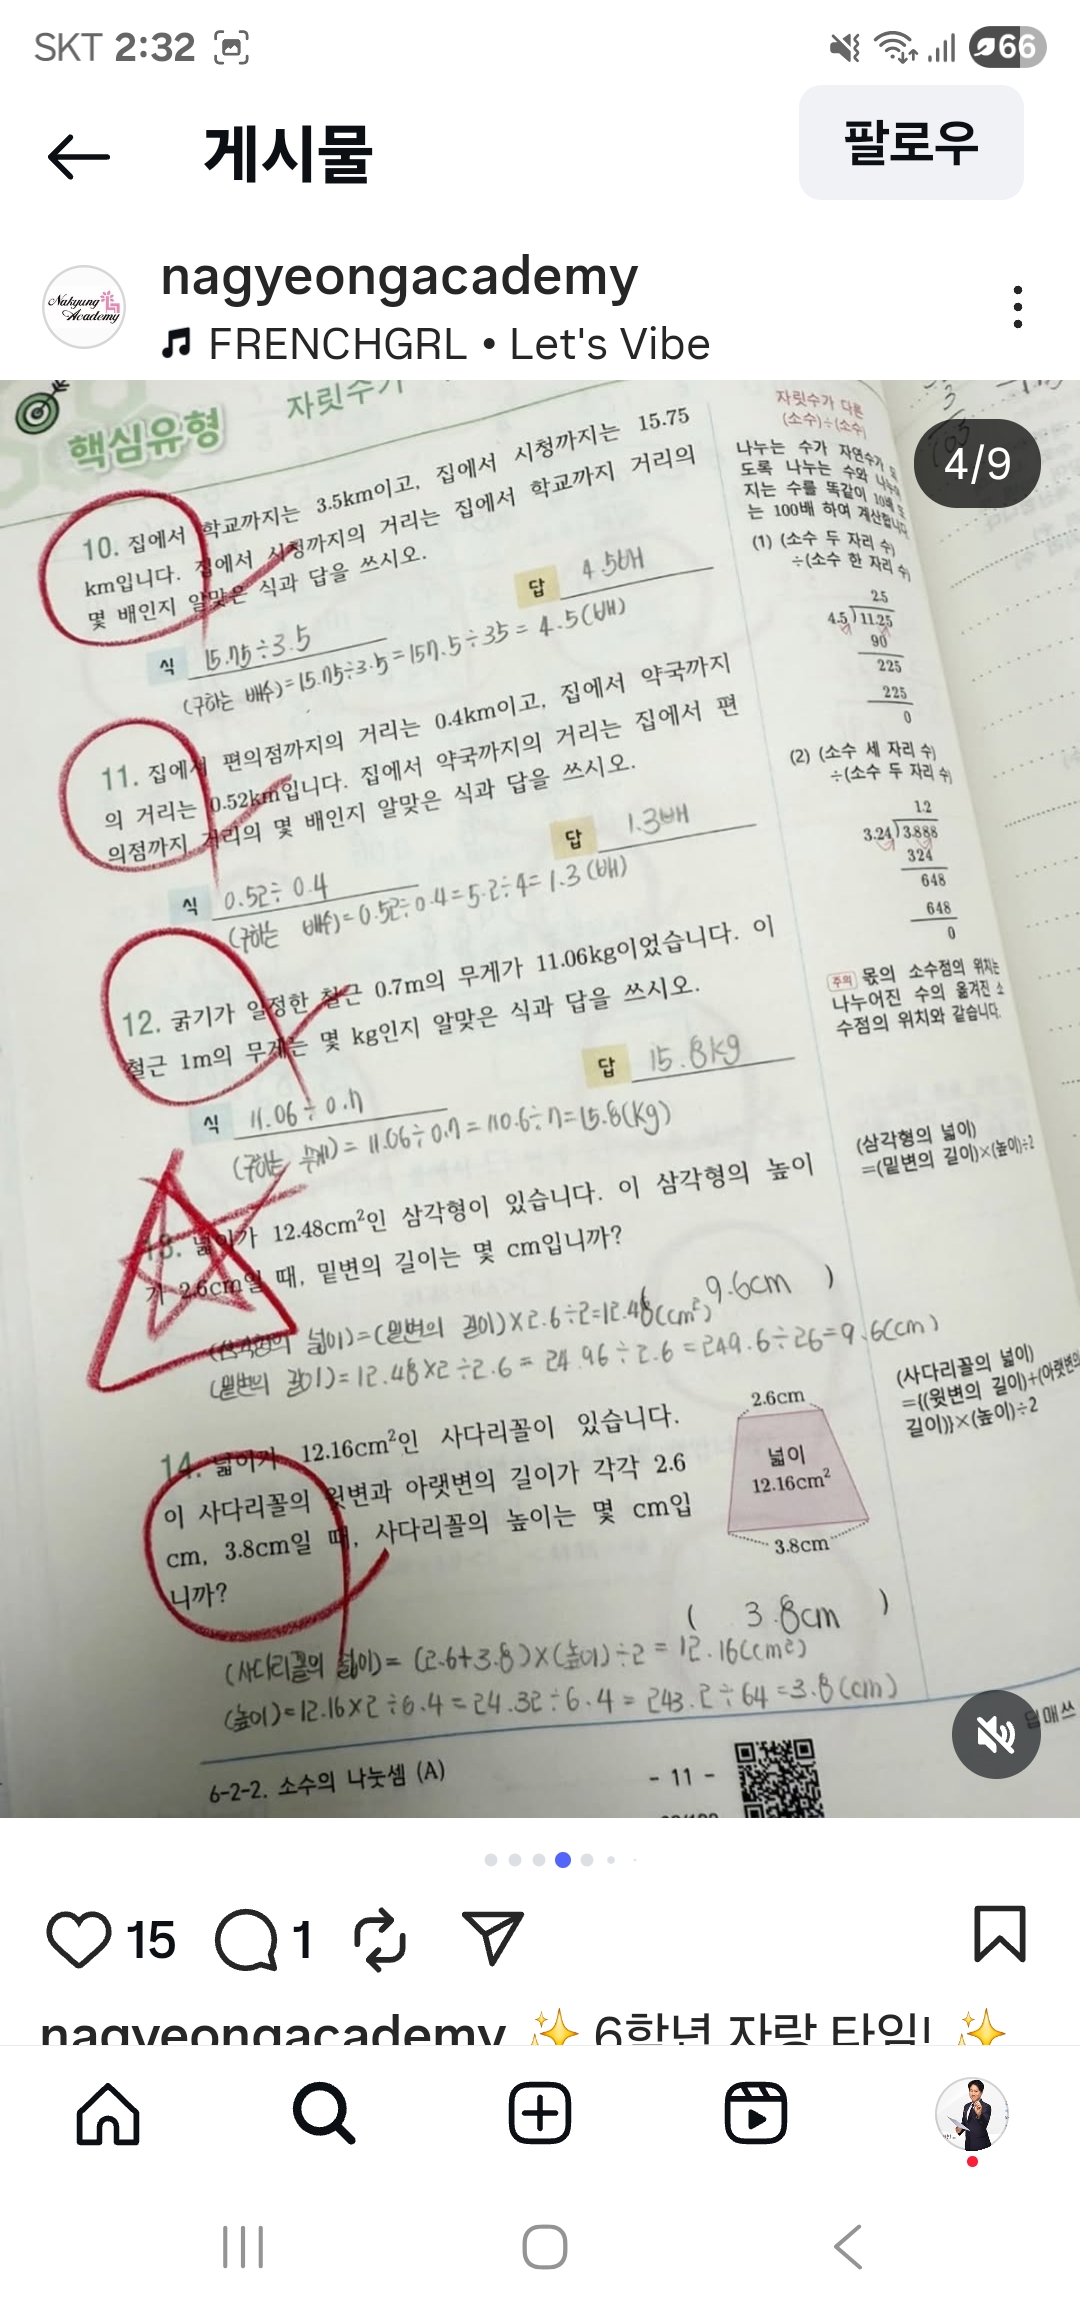 SKT 2:32
66
게시물
팔로우
nagyeongacademy
Nakyung Academy
FRENCHGRL • Let's Vibe
4/9
핵심유형
자릿수가
10. 집에서 학교까지는 3.5km이고, 집에서 시청까지는 15.75
km입니다. 집에서 시청까지의 거리는 집에서 학교까지 거리의
몇 배인지 알맞은 식과 답을 쓰시오.
답 4.5배
식 15.75÷3.5
(구하는 배수)=15.75÷3.5=157.5÷35=4.5(배)
11. 집에서 편의점까지의 거리는 0.4km이고, 집에서 약국까지
의 거리는 0.52km입니다. 집에서 약국까지의 거리는 집에서 편
의점까지 거리의 몇 배인지 알맞은 식과 답을 쓰시오.
답 1.3배
식 0.52÷0.4
(구하는 배수)=0.52÷0.4=5.2÷4=1.3(배)
12. 굵기가 일정한 철근 0.7m의 무게가 11.06kg이었습니다. 이
철근 1m의 무게는 몇 kg인지 알맞은 식과 답을 쓰시오.
답 15.8kg
식 11.06÷0.7
(구하는 무게)=11.06÷0.7=110.6÷7=15.8(kg)
13. 넓이가 12.48cm²인 삼각형이 있습니다. 이 삼각형의 높이
가 2.6cm일 때, 밑변의 길이는 몇 cm입니까?
9.6cm )
(삼각형의 넓이)=(밑변의 길이)×2.6÷2=12.48(cm²)
(밑변의 길이)=12.48×2÷2.6=24.96÷2.6=249.6÷26=9.6(cm)
14. 넓이가 12.16cm²인 사다리꼴이 있습니다.
이 사다리꼴의 윗변과 아랫변의 길이가 각각 2.6
cm, 3.8cm일 때, 사다리꼴의 높이는 몇 cm입
니까?
2.6cm
넓이
12.16cm²
3.8cm
( 3.8cm )
(사다리꼴의 넓이)=(2.6+3.8)×(높이)÷2=12.16(cm²)
(높이)=12.16×2÷6.4=24.32÷6.4=243.2÷64=3.8(cm)
6-2-2. 소수의 나눗셈 (A)
- 11 -
자릿수가 다른
(소수)÷(소수)
나누는 수가 자연수가 되
도록 나누는 수와 나누어
지는 수를 똑같이 10배 또
는 100배 하여 계산합니다.
(1) (소수 두 자리 수)
÷(소수 한 자리 수)
2.5
4.5)11.25
90
225
225
0
(2) (소수 세 자리 수)
÷(소수 두 자리 수)
1.2
3.24)3.888
324
648
648
0
주의 몫의 소수점의 위치는
나누어진 수의 옮겨진 소
수점의 위치와 같습니다.
(삼각형의 넓이)
=(밑변의 길이)×(높이)÷2
(사다리꼴의 넓이)
={(윗변의 길이)+(아랫변의
길이)}×(높이)÷2
15
1
nagyeongacademy ✨ 6학년 자랑 타임! ✨